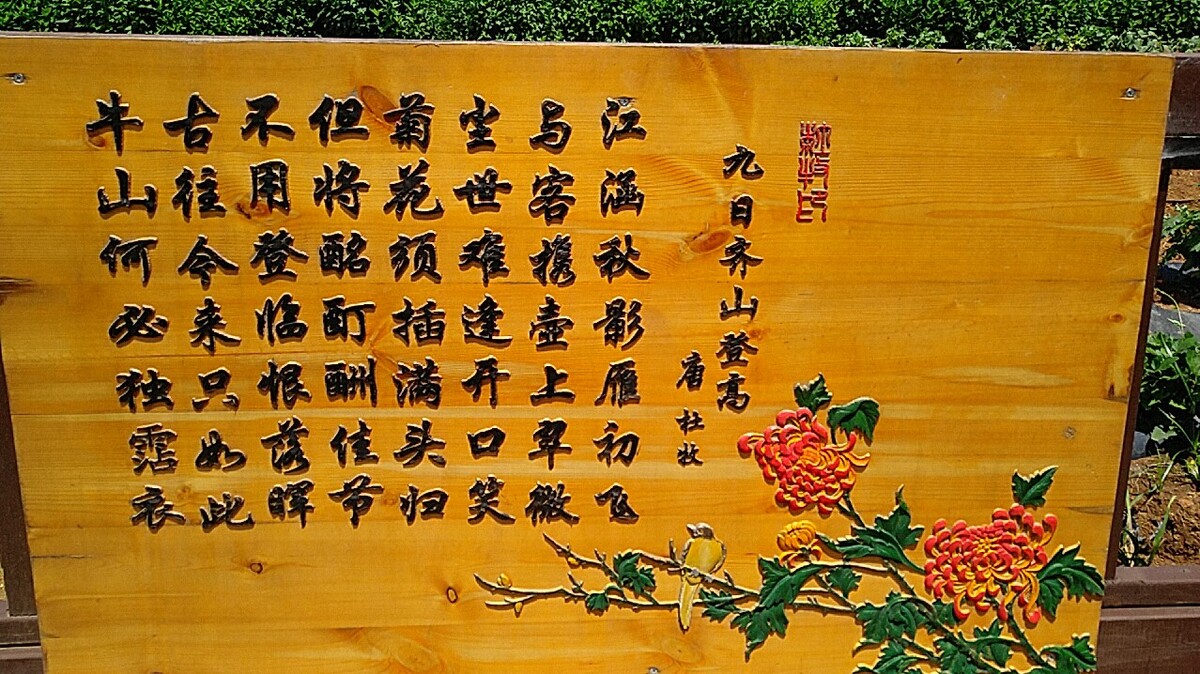 九日齐山登高
唐 杜牧
江涵秋影雁初飞
与客携壶上翠微
尘世难逢开口笑
菊花须插满头归
但将酩酊酬佳节
不用登临恨落晖
古往今来只如此
牛山何必独霑衣